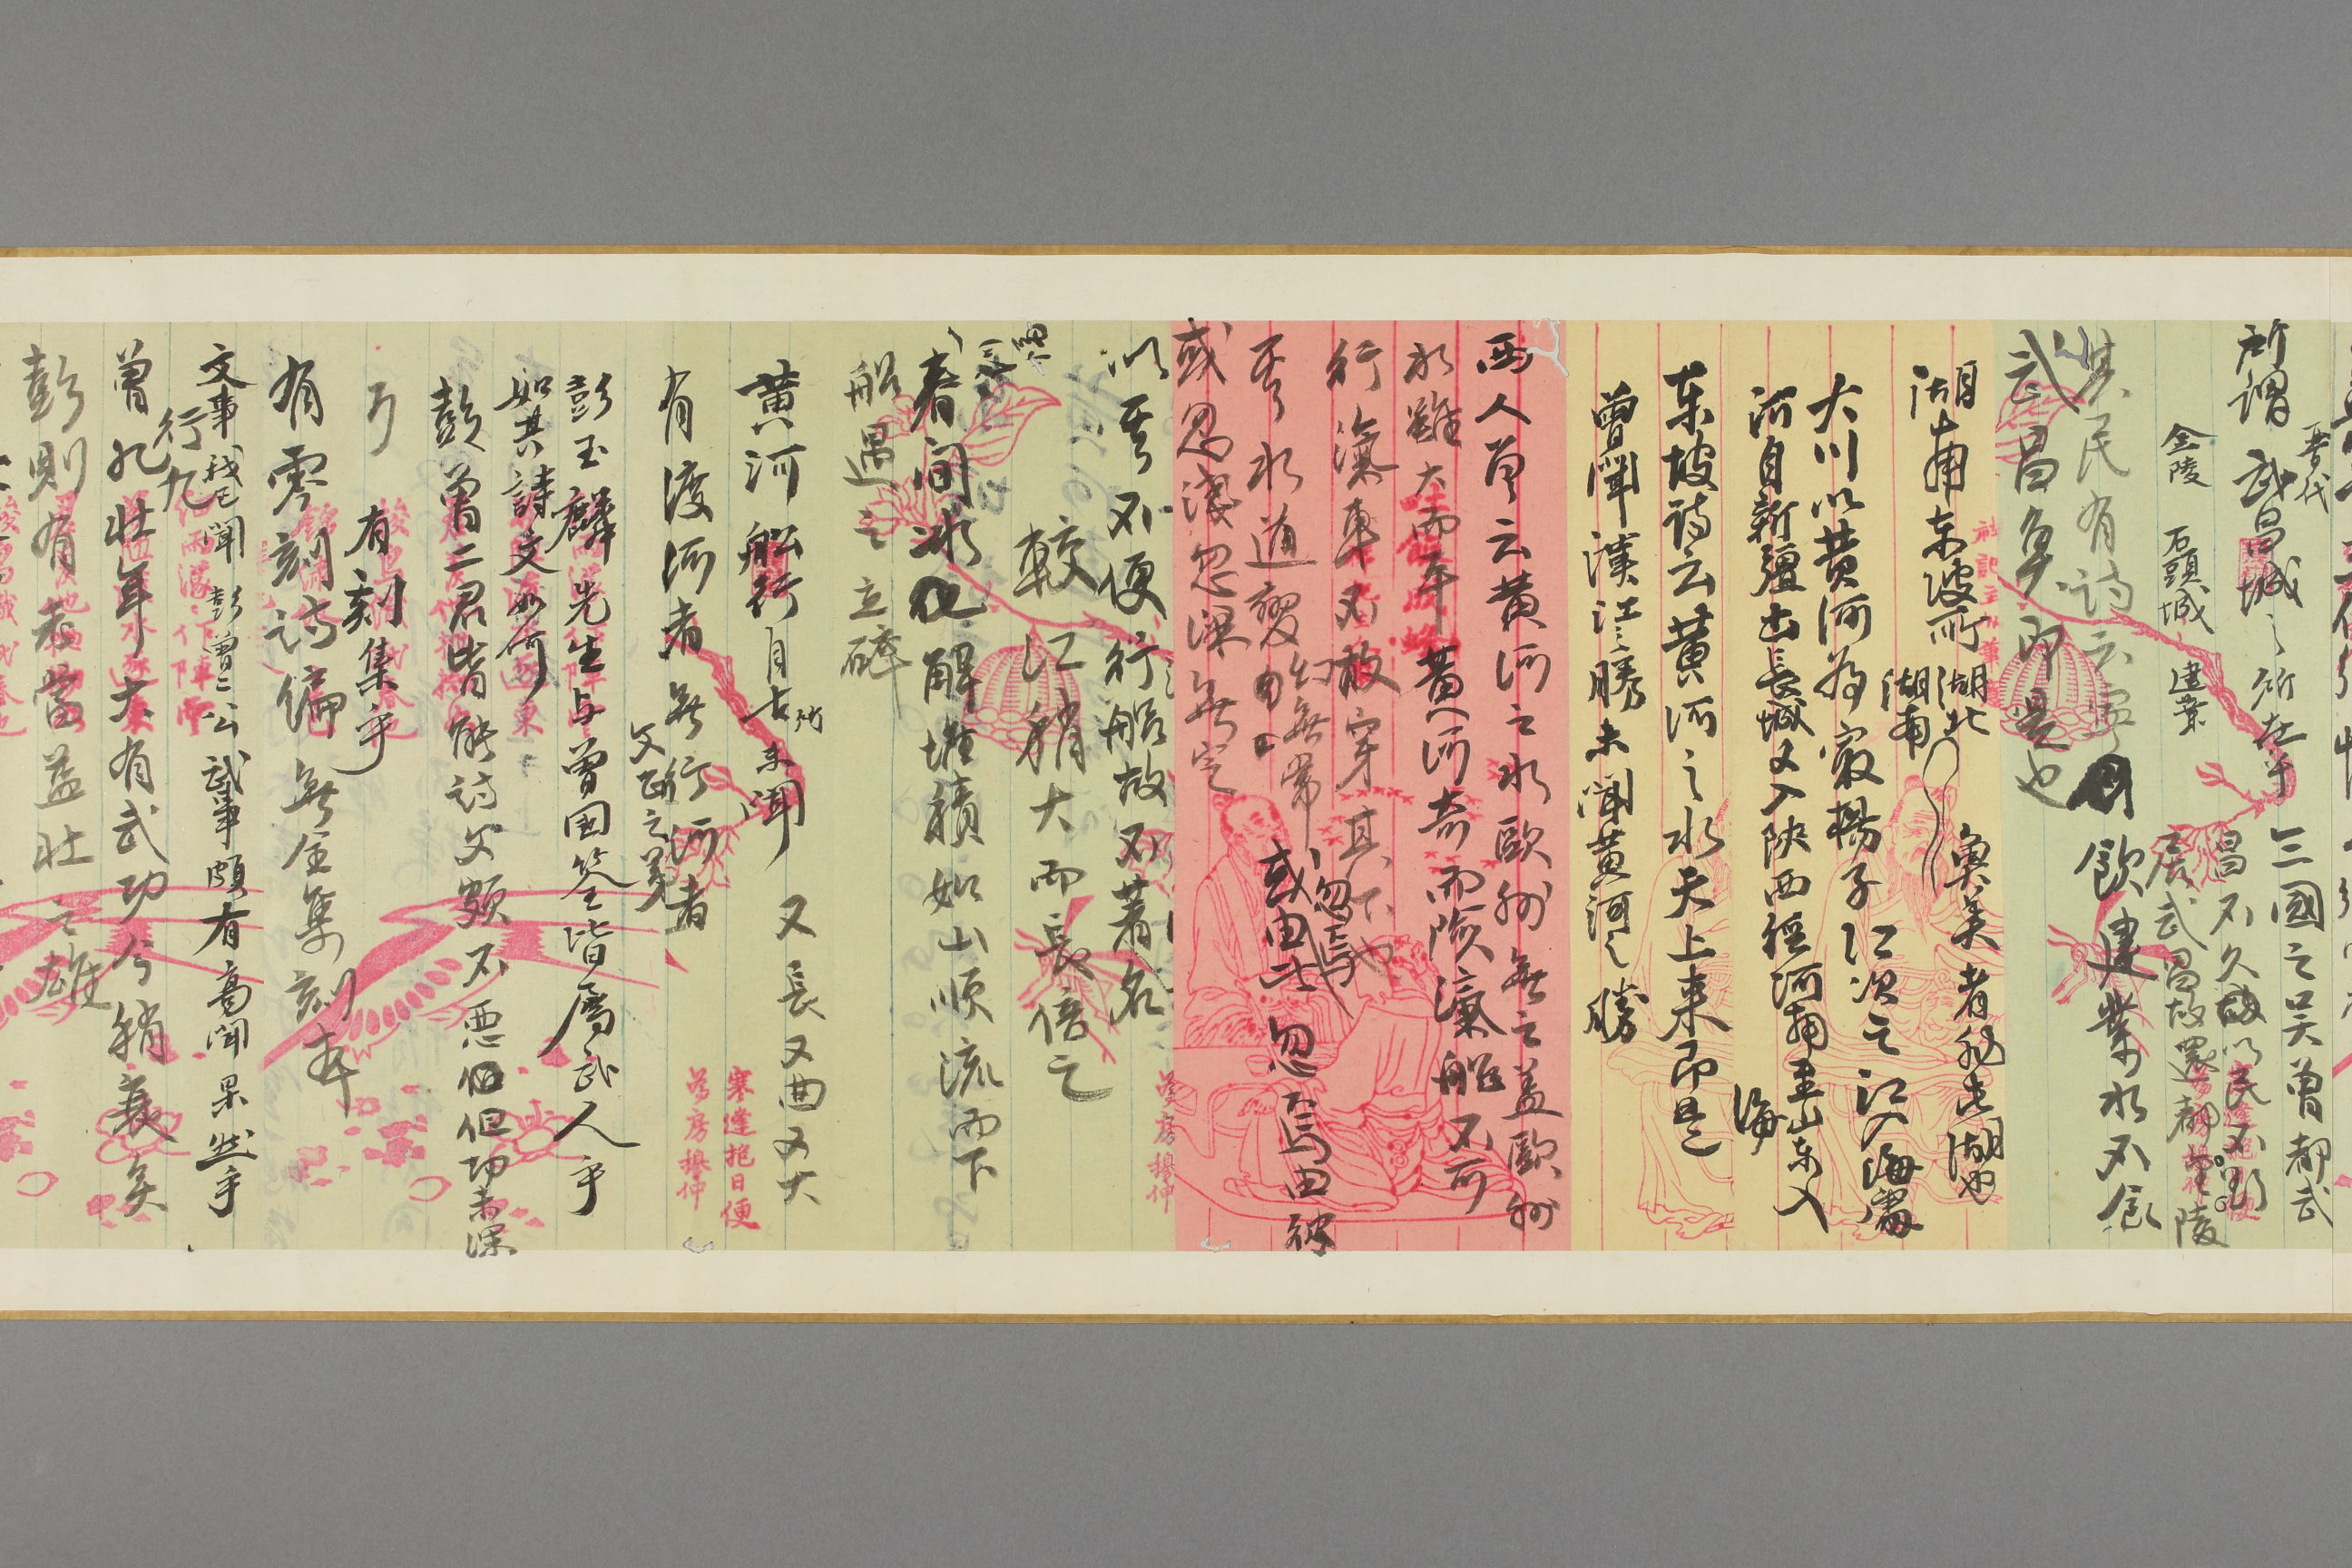 所謂武昌城之所在乎
晋代
三國之吴曾都武
昌不久城以民不歡
居武昌故還都金陵
金陵 石頭城 建業
其民有詩云寧飲建業水不食
武昌魚即是也
湖南東坡所
湖北
湖南
魚美者非古湖也
大川以黄河為最揚子江次之江入海處
河自新疆出長城又入陝西經河南至山东入
海
東坡詩云黄河之水天上来即是
曾聞漢江之勝未聞黄河之勝
西人曾云黄河之水歐州無之蓋歐州
水雖大而平黄河奔而險瀛船不可
行瀛車不敢穿其下也
至水道變幻無常
忽与
或由此忽焉由彼
或忽淺忽深無定
以至不便行船故不著名
較江稍大而長倍之
春間冰化解堆積如山順流而下
船遇之立碎
黄河船行自古所未聞
又長又曲又大
有渡河者無行河者
彭玉麟先生与曾国筌皆屬武人乎
如其詩文如何
文正之弟
彭曾二君皆能詩文頗不恶但功未深
有刻集乎
有零刻詩偏無全集刻本
文事我已聞彭曾二公武事頗有高聞果然乎
曾行九壮年大有武功今稍衰矣
彭則有老當益壮之雄